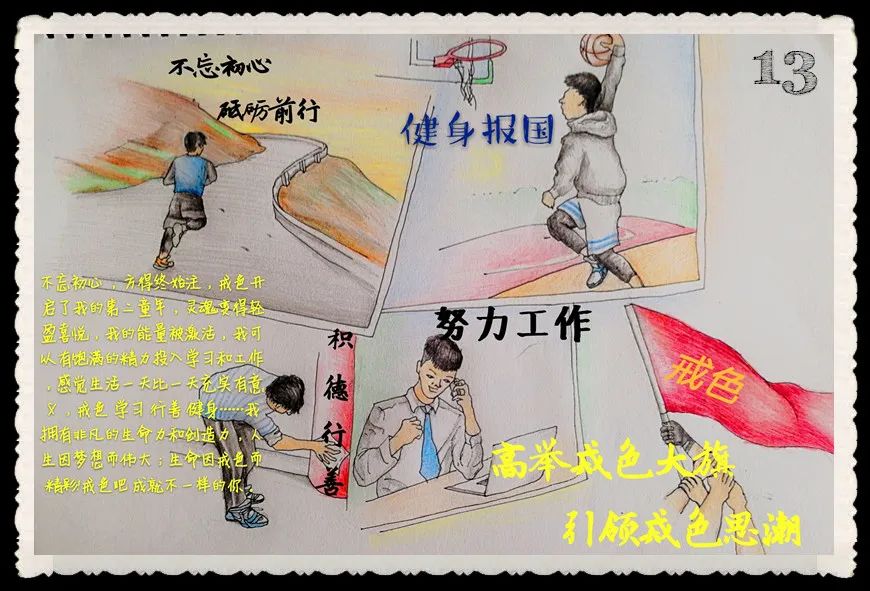 13
不忘初心
砥砺前行
健身报国
不忘初心，方得终始注，戒色开
启了我的第二童年，灵魂变得轻
盈喜悦，我的能量被激活，我可
以有饱满的精力投入学习和工作
，感觉生活一天比一天充实有意
义，戒色 学习 行善 健身……我
拥有非凡的生命力和创造力，人
生因梦想而伟大；生命因戒色而
精彩！戒色吧 成就不一样的你。
积德行善
努力工作
戒色
高举戒色大旗
引领戒色思潮